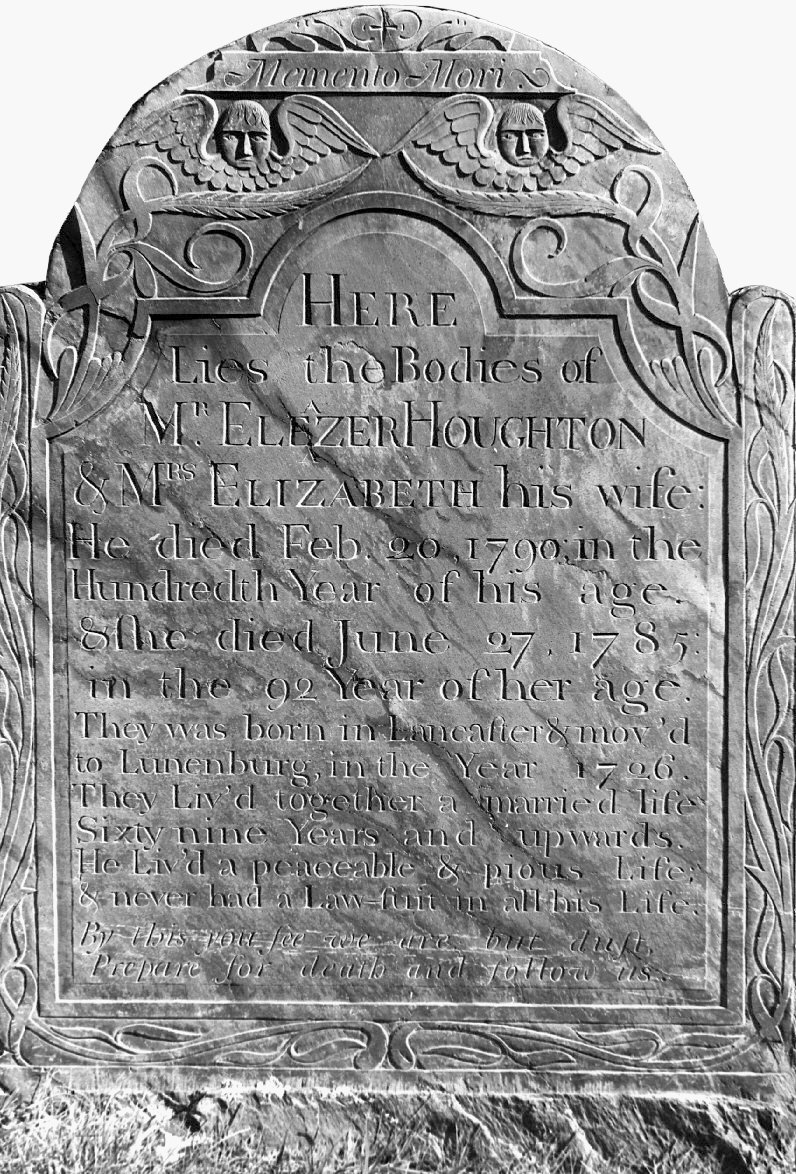 Memento Mori
HERE
Lies the Bodies of
Mr. ELEAZER HOUGHTON
& MRS ELIZABETH his wife:
He died Feb. 20, 1790; in the
Hundredth Year of his age.
& ſhe died June 27, 1785:
in the 92 Year of her age.
They was born in Lancaſter & mov'd
to Lunenburg, in the Year 1726.
They Liv'd together a married life
Sixty nine Years and upwards.
He Liv'd a peaceable & pious Life;
& never had a Law-ſuit in all his Life.
By this you ſee we are but duſt,
Prepare for death and follow us.